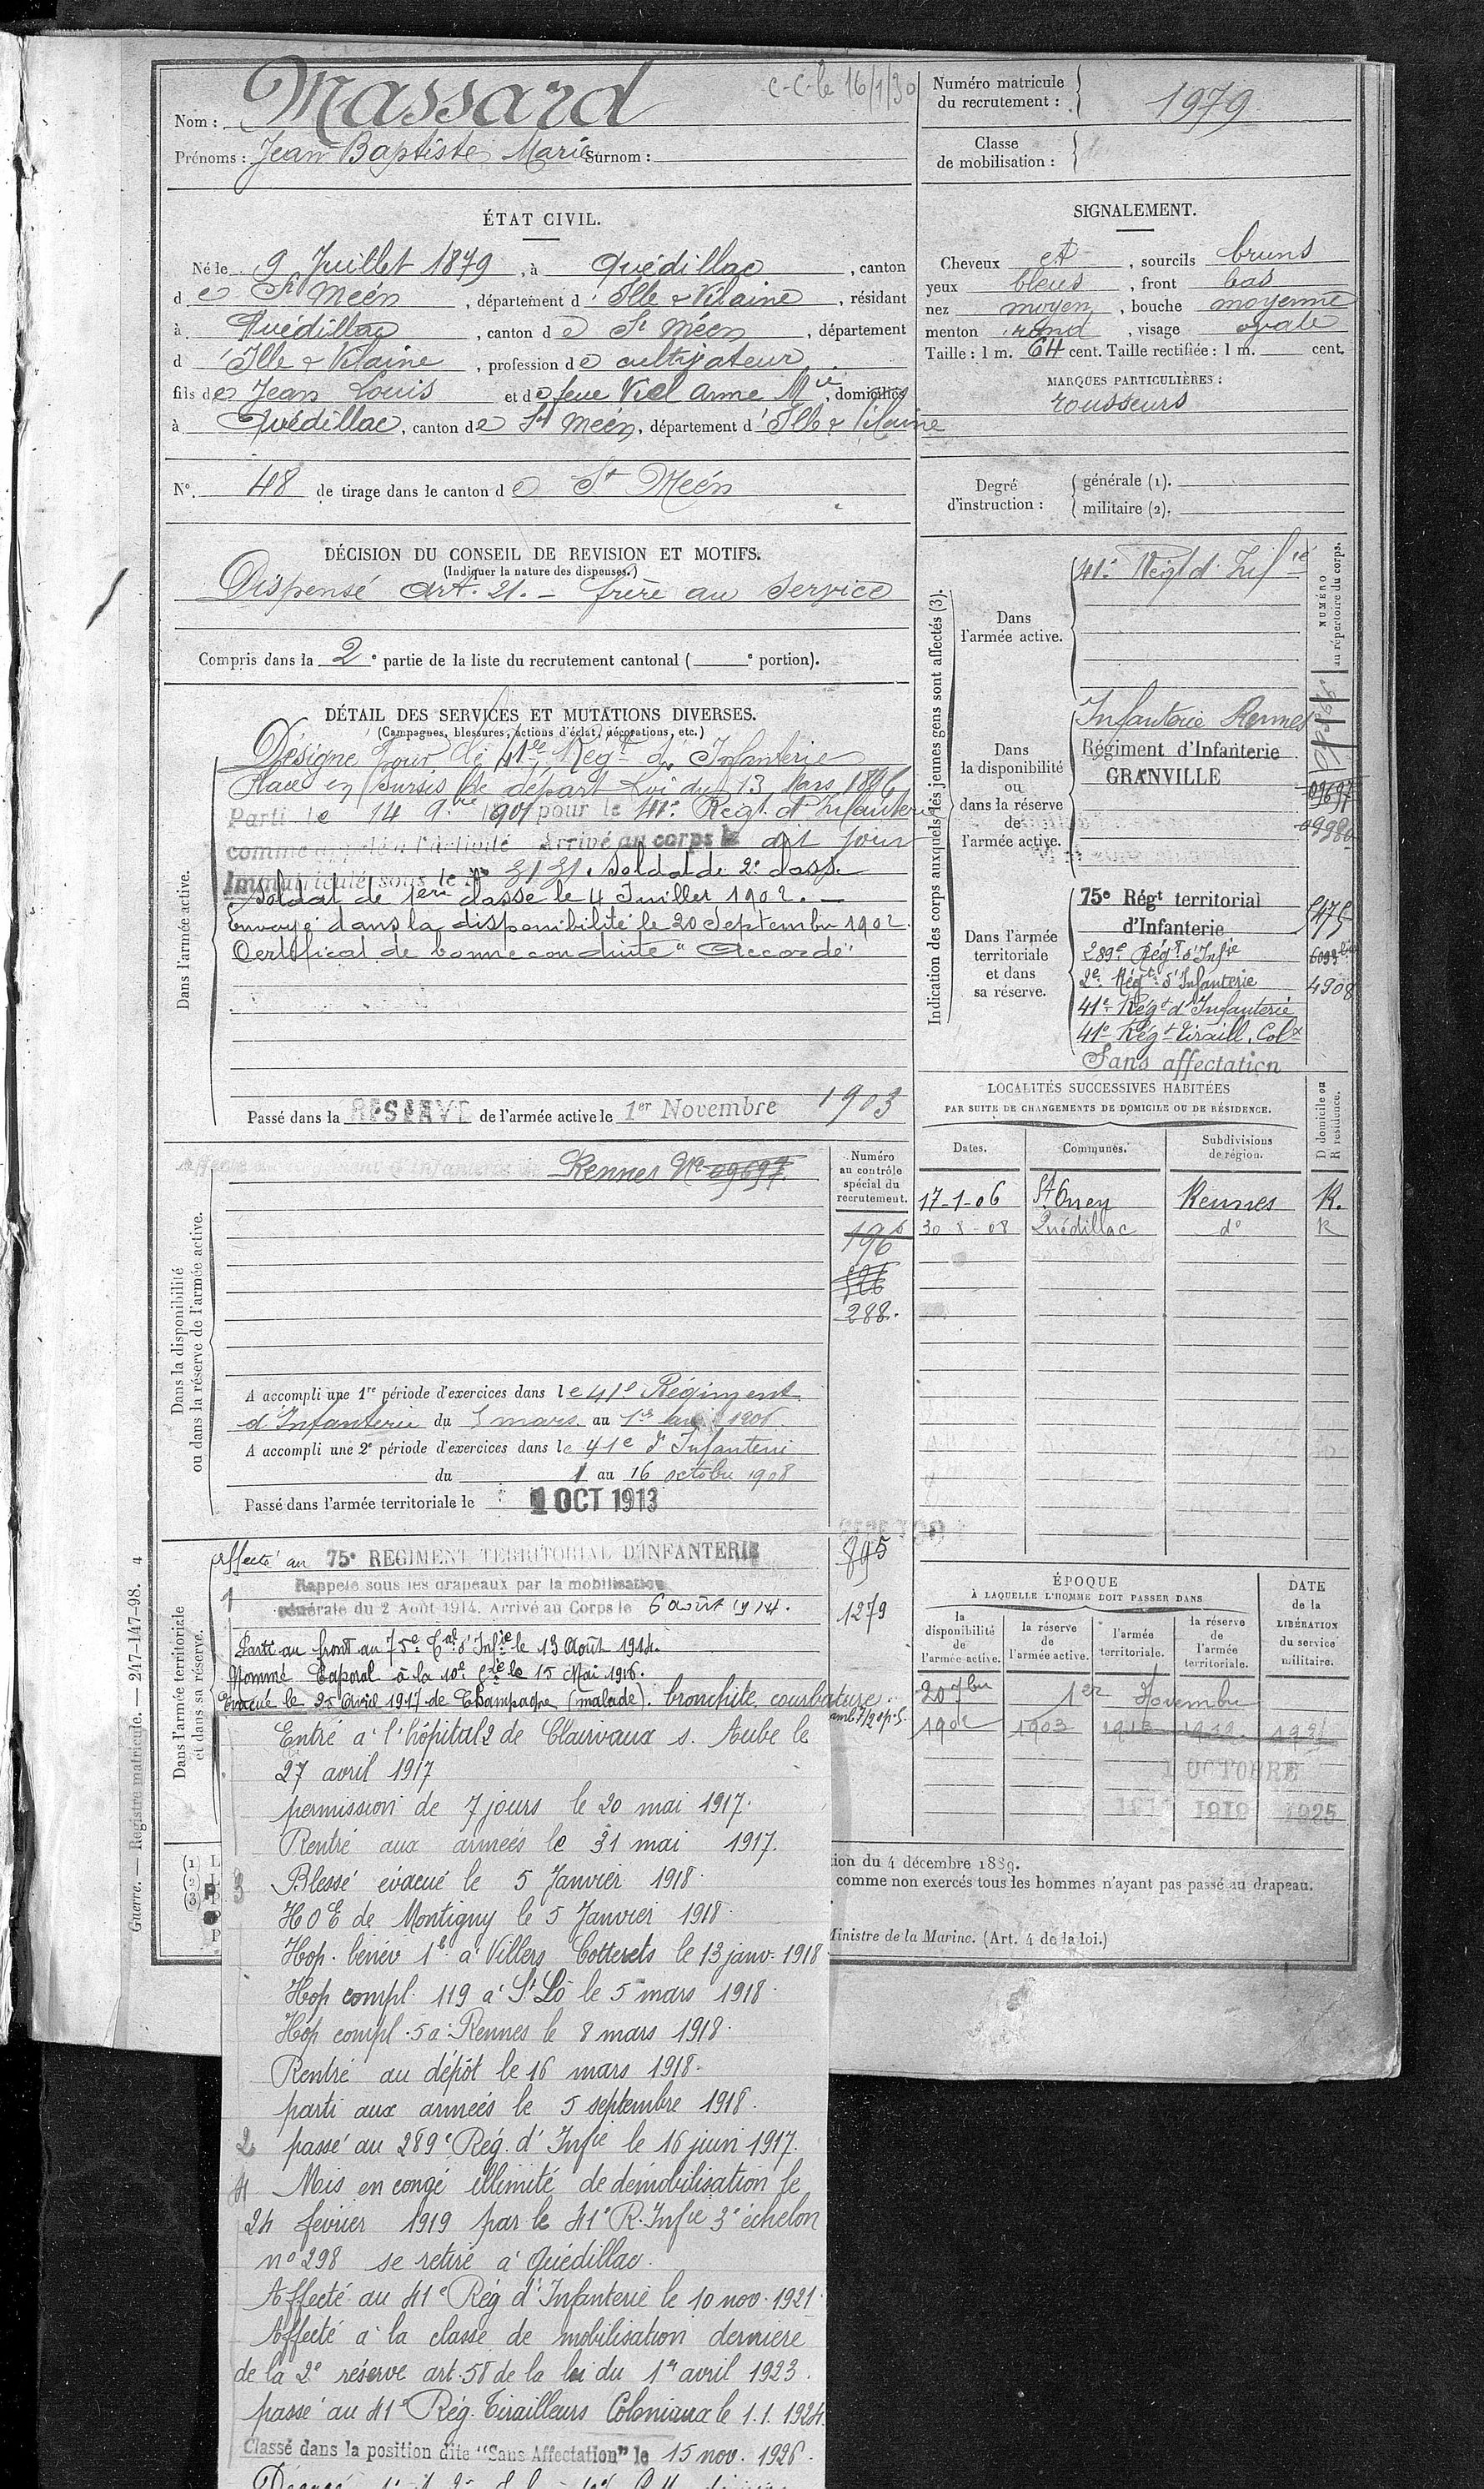 Nom : Massard
c-c-le 16/1/30
Prénoms : Jean Baptiste Marie Surnom :
Numéro matricule du recrutement : 1979
Classe de mobilisation :
ÉTAT CIVIL.
Né le 9 Juillet 1879, à Quédillac, canton
de St Méen, département d'Ille & Vilaine, résidant
à Quédillac, canton de St Méen, département
d'Ille & Vilaine, profession de cultivateur
fils de Jean Louis et de feue Viel Anne Mie, domiciliés
à Quédillac, canton de St Méen, département d'Ille & Vilaine
N° 48 de tirage dans le canton de St Méen
SIGNALEMENT.
Cheveux et, sourcils bruns
yeux bleus, front bas
nez moyen, bouche moyenne
menton rond, visage ovale
Taille : 1 m. 64 cent. Taille rectifiée : 1 m. cent.
MARQUES PARTICULIÈRES :
rousseurs
Degré d'instruction : générale (1).
militaire (2).
DÉCISION DU CONSEIL DE REVISION ET MOTIFS.
(Indiquer la nature des dispenses.)
Dispensé Art. 21. - frère au service
Compris dans la 2e partie de la liste du recrutement cantonal ( e portion).
DÉTAIL DES SERVICES ET MUTATIONS DIVERSES.
(Campagnes, blessures, actions d'éclat, décorations, etc.)
Dans l'armée active.
Désigné pour le 41e Regt d'Infanterie
Placé en sursis de départ Loi du 13 Mars 1896
Parti le 14 9bre 1901 pour le 41e Régt d'Infanterie
comme appelé à l'activité Arrivé au corps le dit jour
Immatriculé sous le No 3131. Soldat de 2e classe
Soldat de 1ere classe le 4 Juillet 1902.
Envoyé dans la disponibilité le 20 Septembre 1902.
Certificat de bonne conduite "Accordé"
Passé dans la RESERVE de l'armée active le 1er Novembre 1903
Indication des corps auxquels les jeunes gens sont affectés (3).
NUMÉRO au répertoire du corps.
Dans l'armée active.
41e Régt d'Infie
Dans la disponibilité ou dans la réserve de l'armée active.
Infanterie Rennes
Régiment d'Infanterie
GRANVILLE
09697
09380
Dans l'armée territoriale et dans sa réserve.
75e Régt territorial
d'Infanterie
5475
289e Régt d'Infie
2e Régt d'Infanterie
4908
41e Régt d'Infanterie
41e Régt Tiraill. Colx
Sans affectation
LOCALITÉS SUCCESSIVES HABITÉES
PAR SUITE DE CHANGEMENTS DE DOMICILE OU DE RÉSIDENCE.
D domicile ou R résidence.
Dates. Communes. Subdivisions de région.
17-1-06 St Onen Rennes R.
30-8-08 Quédillac do R
Dans la disponibilité ou dans la réserve de l'armée active.
Affecté au Régiment d'Infanterie de Rennes No 09697
Numéro au contrôle spécial du recrutement.
196
526
288.
A accompli une 1re période d'exercices dans le 41e Régiment
d'Infanterie du 5 mars au 1er avril 1906
A accompli une 2e période d'exercices dans le 41e d'Infanterie
du 1 au 16 octobre 1908
Passé dans l'armée territoriale le 1 OCT 1913
Dans l'armée territoriale et dans sa réserve.
affecté au 75e REGIMENT TERRITORIAL D'INFANTERIE
895
1 Rappelé sous les drapeaux par la mobilisation
générale du 2 Août 1914. Arrivé au Corps le 6 août 1914.
1279
Parti au front au 75e Tal d'Infie le 13 Août 1914.
Nommé Caporal à la 10e Cie le 15 Mai 1916.
Evacué le 25 Avril 1917 de Champagne (malade). bronchite, courbature
amb 7/20 p.5.
Entré à l'hôpital 2 de Clairvaux s. Aube le
27 avril 1917
permission de 7 jours le 20 mai 1917.
Rentré aux armées le 31 mai 1917.
3 Blessé évacué le 5 Janvier 1918.
HOE de Montigny le 5 Janvier 1918.
Hop. bénév 1b à Villers Cotterets le 13 janv. 1918
Hop compl. 119 à St Lô le 5 mars 1918.
Hop compl. 5 à Rennes le 8 mars 1918.
Rentré au dépôt le 16 mars 1918.
parti aux armées le 5 septembre 1918.
2 passé au 289e Rég. d'Infie le 16 juin 1917.
4 Mis en congé illimité de démobilisation le
24 février 1919 par le 41e R. Infie 3e échelon
no 298 se retire à Quédillac.
Affecté au 41e Rég d'Infanterie le 10 nov. 1921.
Affecté à la classe de mobilisation dernière
de la 2e réserve art. 58 de la loi du 1er avril 1923.
passé au 41e Rég. Tirailleurs Coloniaux le 1.1.1924.
Classé dans la position dite "Sans Affectation" le 15 nov. 1926.
ÉPOQUE
À LAQUELLE L'HOMME DOIT PASSER DANS
DATE de la LIBÉRATION du service militaire.
la disponibilité de l'armée active. la réserve de l'armée active. l'armée territoriale. la réserve de l'armée territoriale.
20 7bre 1er Novembre
1902 1903 1913
1 OCTOBRE
1919 1925
ion du 4 décembre 1889.
comme non exercés tous les hommes n'ayant pas passé au drapeau.
Ministre de la Marine. (Art. 4 de la loi.)
Guerre. — Registre matricule. — 247-147-98. 4